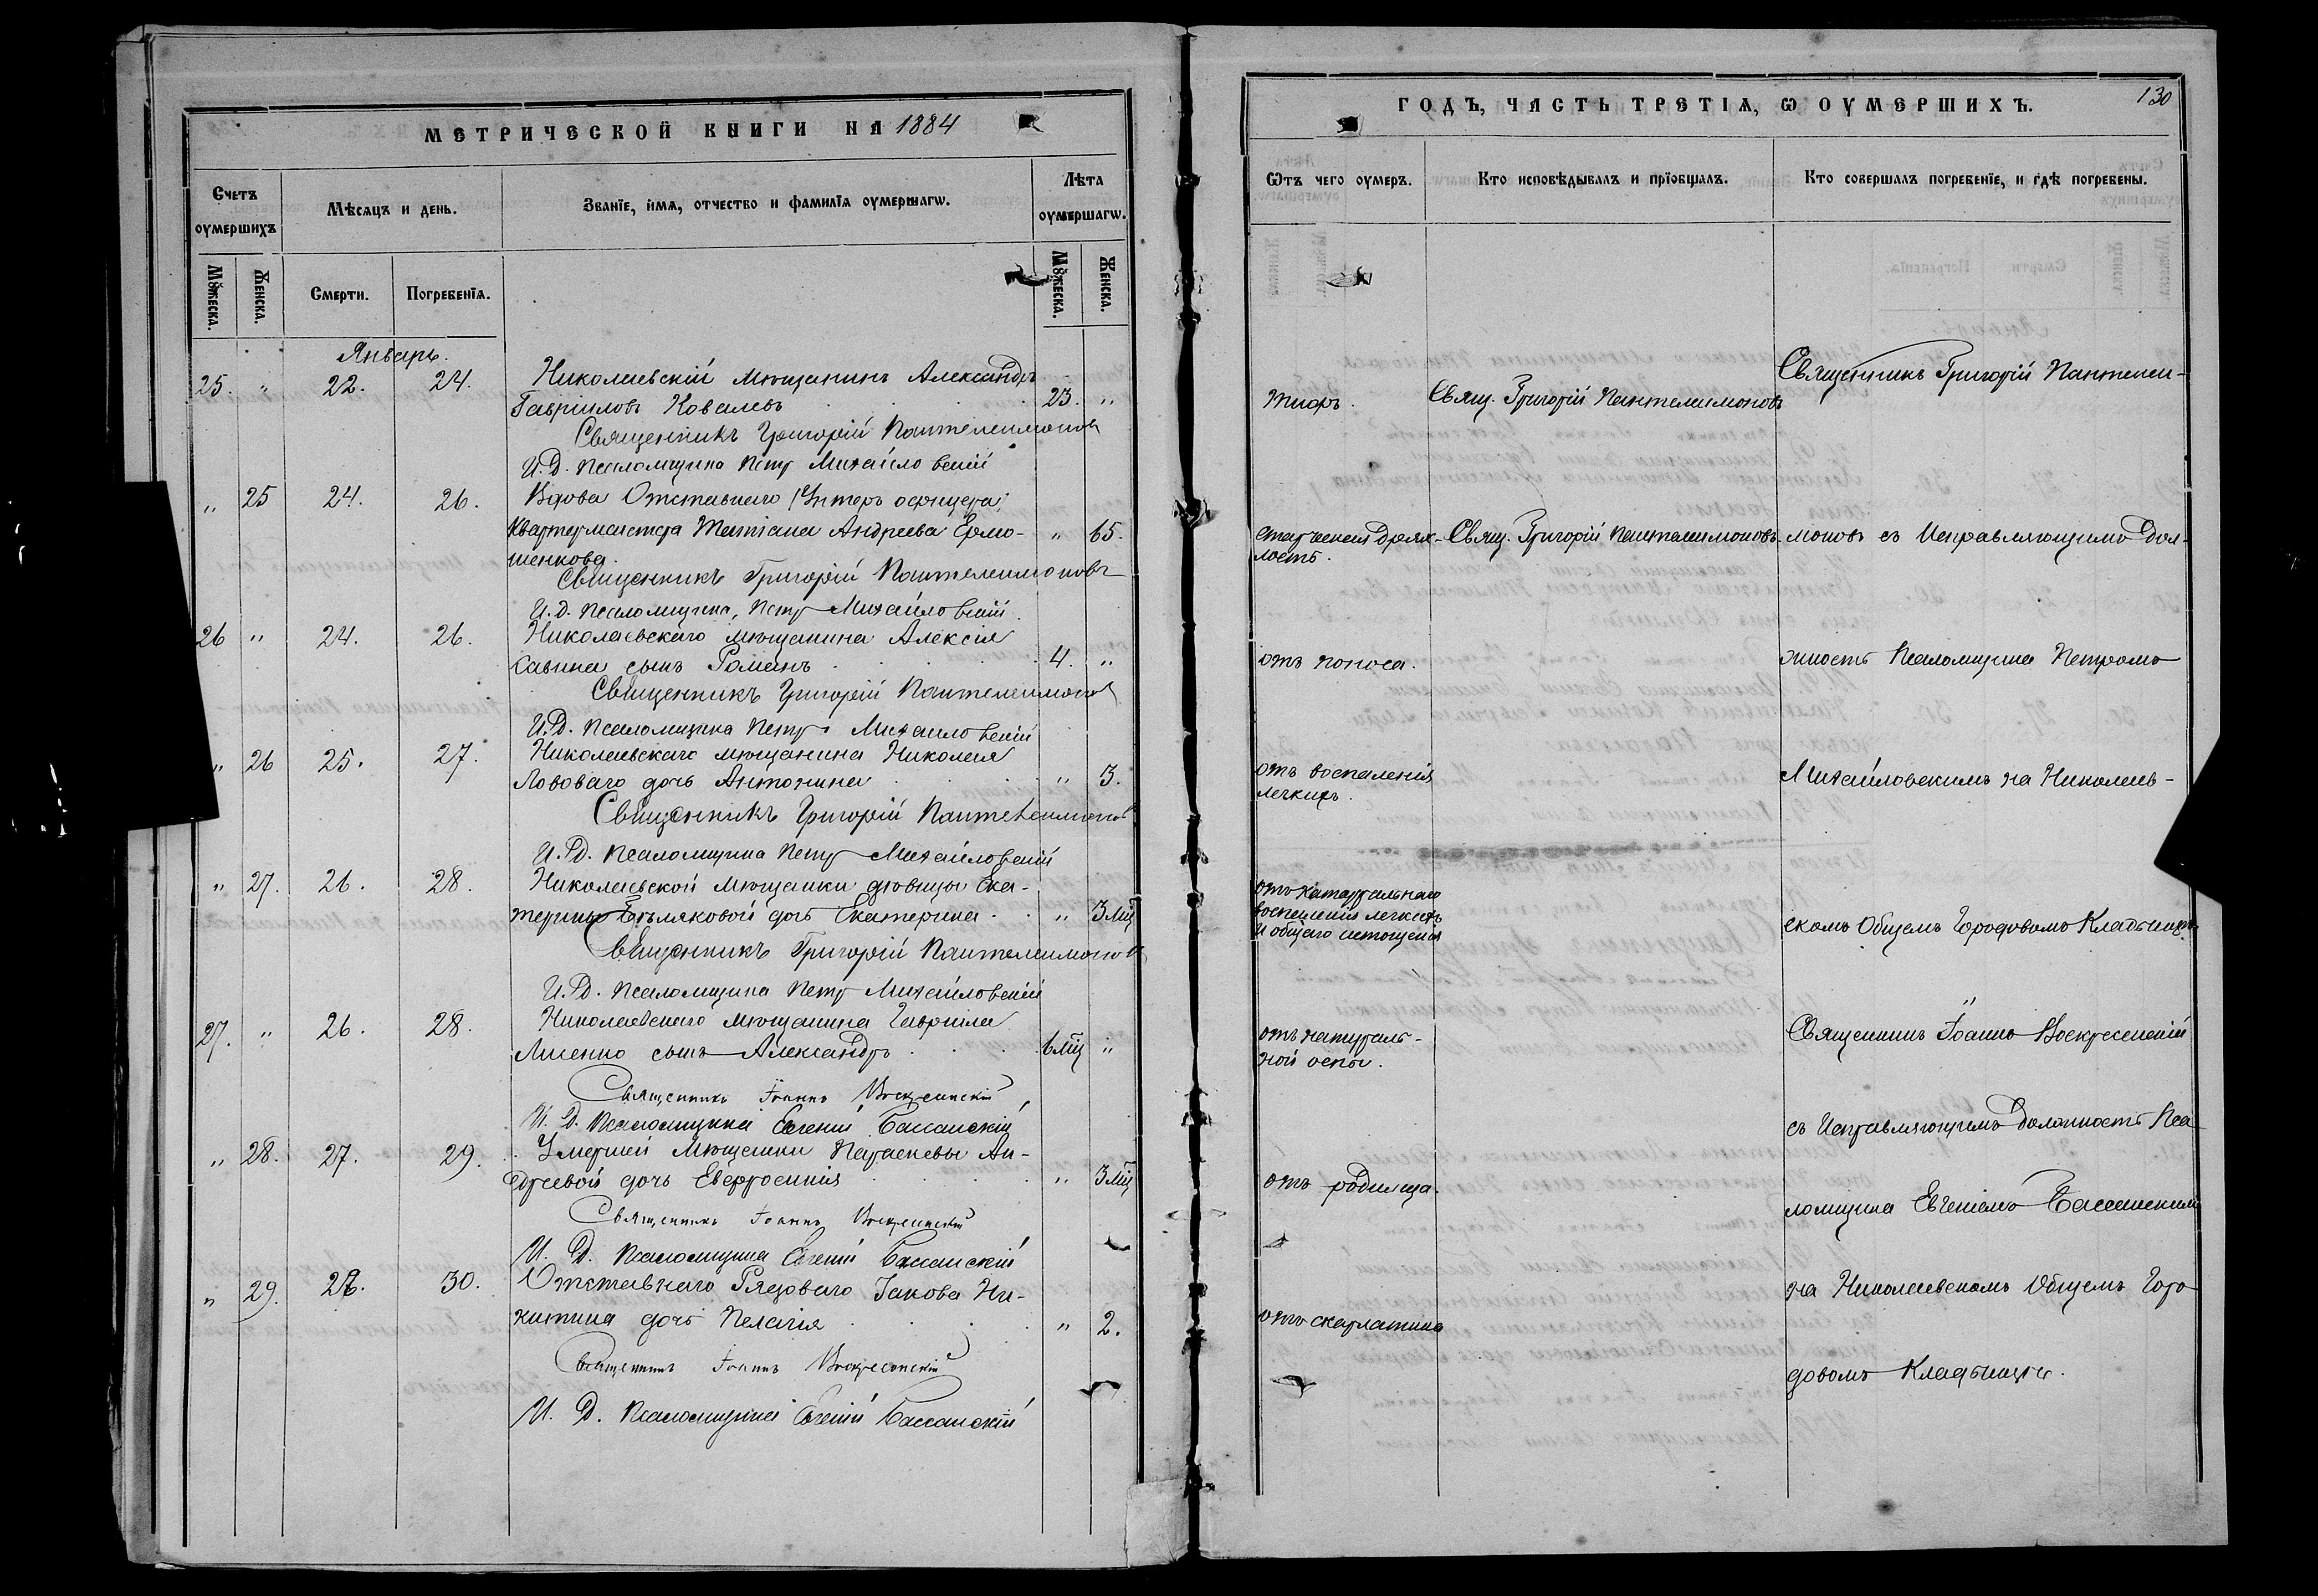 МЕТРИЧЕСКОЙ КНИГИ НА 1884
Счетъ оумершихъ
Мѣсяцъ и день.
Званїе, имя, отчество и фамилїя оумершагѡ.
Лѣта оумершагѡ.
Мꙋжеска.
Женска.
Смерти.
Погребенїя.
Мꙋжеска.
Женска.
Январь.
25. " 22. 24. Николаевскій мѣщанинъ Александръ
Гавріиловъ Ковалевъ 23. "
Священникъ Григорій Пантелеимоновъ
И.Д. Псаломщика Петръ Михайловскій
" 25 24. 26. Вдова Отставнаго (Унтеръ офицера)
Квартермистра Татіана Андреева Ермо- " 65.
шенкова.
Священникъ Григорій Пантелеимоновъ
И.Д. Псаломщика, Петръ Михайловскій
26 " 24. 26. Николаевскаго мѣщанина Алексія
Савина сынъ Романъ 4. "
Священникъ Григорій Пантелеимоновъ
И.Д. Псаломщика Петръ Михайловскій
" 26 25. 27. Николаевскаго мѣщанина Николая
Лововаго дочь Антонина " 3.
Священникъ Григорій Пантелеимоновъ
И.Д. Псаломщика Петръ Михайловскій
" 27. 26. 28. Николаевской мѣщанки дѣвицы Ека-
терины дочь Екатерина " 3 мц
Священникъ Григорій Пантелеимоновъ
И.Д. Псаломщика Петръ Михайловскій
27. " 26. 28. Николаевскаго мѣщанина Гавріила
Лисенко сынъ Александръ 6 мц "
Священникъ Іоаннъ Воскресенскій
И.Д. Псаломщика Евгеній Бассанскій
" 28. 27. 29. Умершей мѣщанки Параскевы Ан-
дреевой дочь Евфросинія " 3 мц
Священникъ Іоаннъ Воскресенскій
И.Д. Псаломщика Евгеній Бассанскій
" 29. 28. 30. Отставнаго Рядоваго Іакова Ни-
китина дочь Пелагія " 2.
Священникъ Іоаннъ Воскресенскій
И.Д. Псаломщика Евгеній Бассанскій
ГОДЪ, ЧАСТЬ ТРЕТІЯ, Ѡ ОУМЕРШИХЪ.
130
Ѿтъ чего оумеръ.
Кто исповѣдывалъ и прїобщалъ.
Кто совершалъ погребенїе, и гдѣ погребены.
Священникъ Григорій Пантелеи-
Свящ. Григорій Пантелеимоновъ
старческая дрях- Свящ. Григорій Пантелеимоновъ моновъ съ Исправляющимъ Дол-
лость.
отъ поноса. жность Псаломщика Петромъ
отъ воспаленія Михайловскимъ на Николаев-
легкихъ.
отъ катарральнаго
воспаленія легкихъ
и общаго истощенія скомъ Общемъ Городовомъ Кладбищѣ.
"
отъ натураль- Священникъ Іоаннъ Воскресенскій
ной оспы.
съ Исправляющимъ Должность Пса
отъ родимца.
ломщика Евгеніемъ Бассанскимъ
на Николаевскомъ Общемъ Горо
отъ скарлатины
довомъ Кладбищѣ.